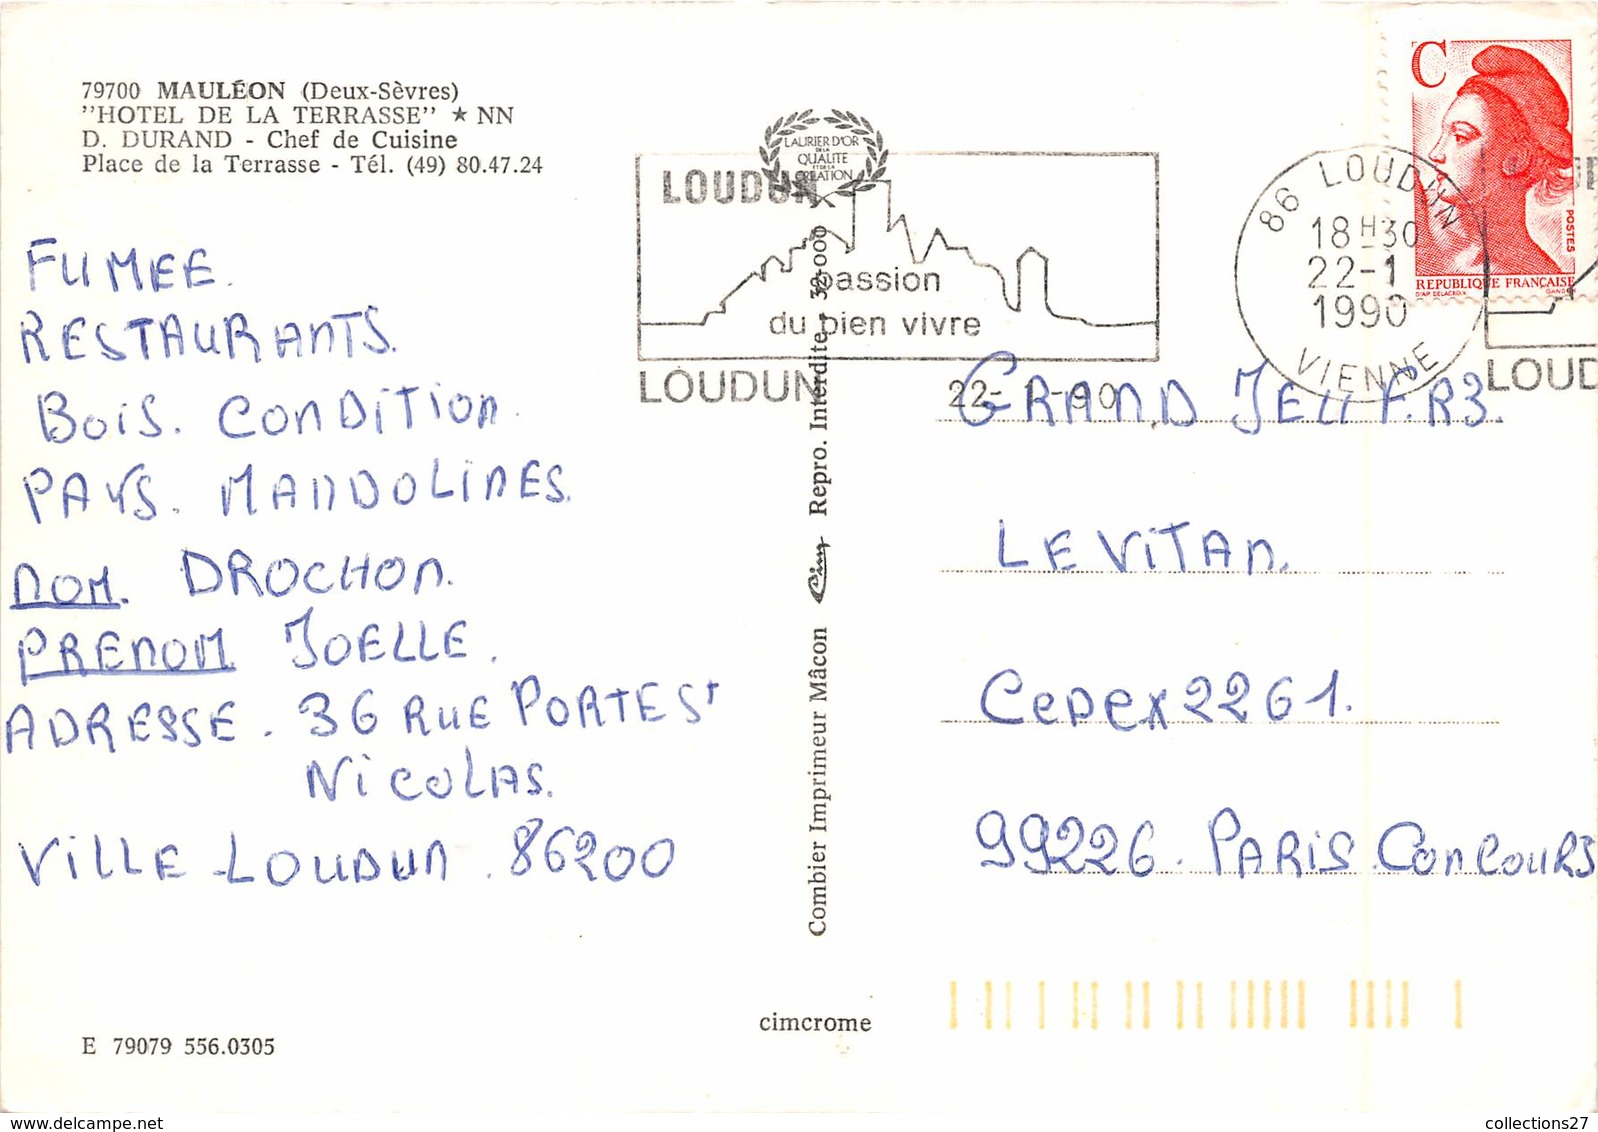 79700 MAULÉON (Deux-Sèvres)
"HOTEL DE LA TERRASSE" ★ NN
D. DURAND - Chef de Cuisine
Place de la Terrasse - Tél. (49) 80.47.24
FUMEE.
RESTAURANTS.
BOIS. CONDITION.
PAYS. MANDOLINES.
NOM. DROCHON.
PRENOM JOELLE.
ADRESSE. 36 RUE PORTE St
NICOLAS.
VILLE-LOUDUN. 86200
E 79079 556.0305
LAURIER D'OR
DE LA
QUALITE
ET DE LA
CREATION
LOUDUN
passion
du bien vivre
LOUDUN 22-1-90
86 LOUDUN
18H30
22-1
1990
VIENNE
C
POSTES
REPUBLIQUE FRANÇAISE
D'AP. DELACROIX GANDON
LOUD
Combier Imprimeur Mâcon Cim Repro. Interdite - 32-000
cimcrome
GRAND JEU F.R3.
LEVITAN.
CEDEX 2261.
99226. PARIS CONCOURS
collections27